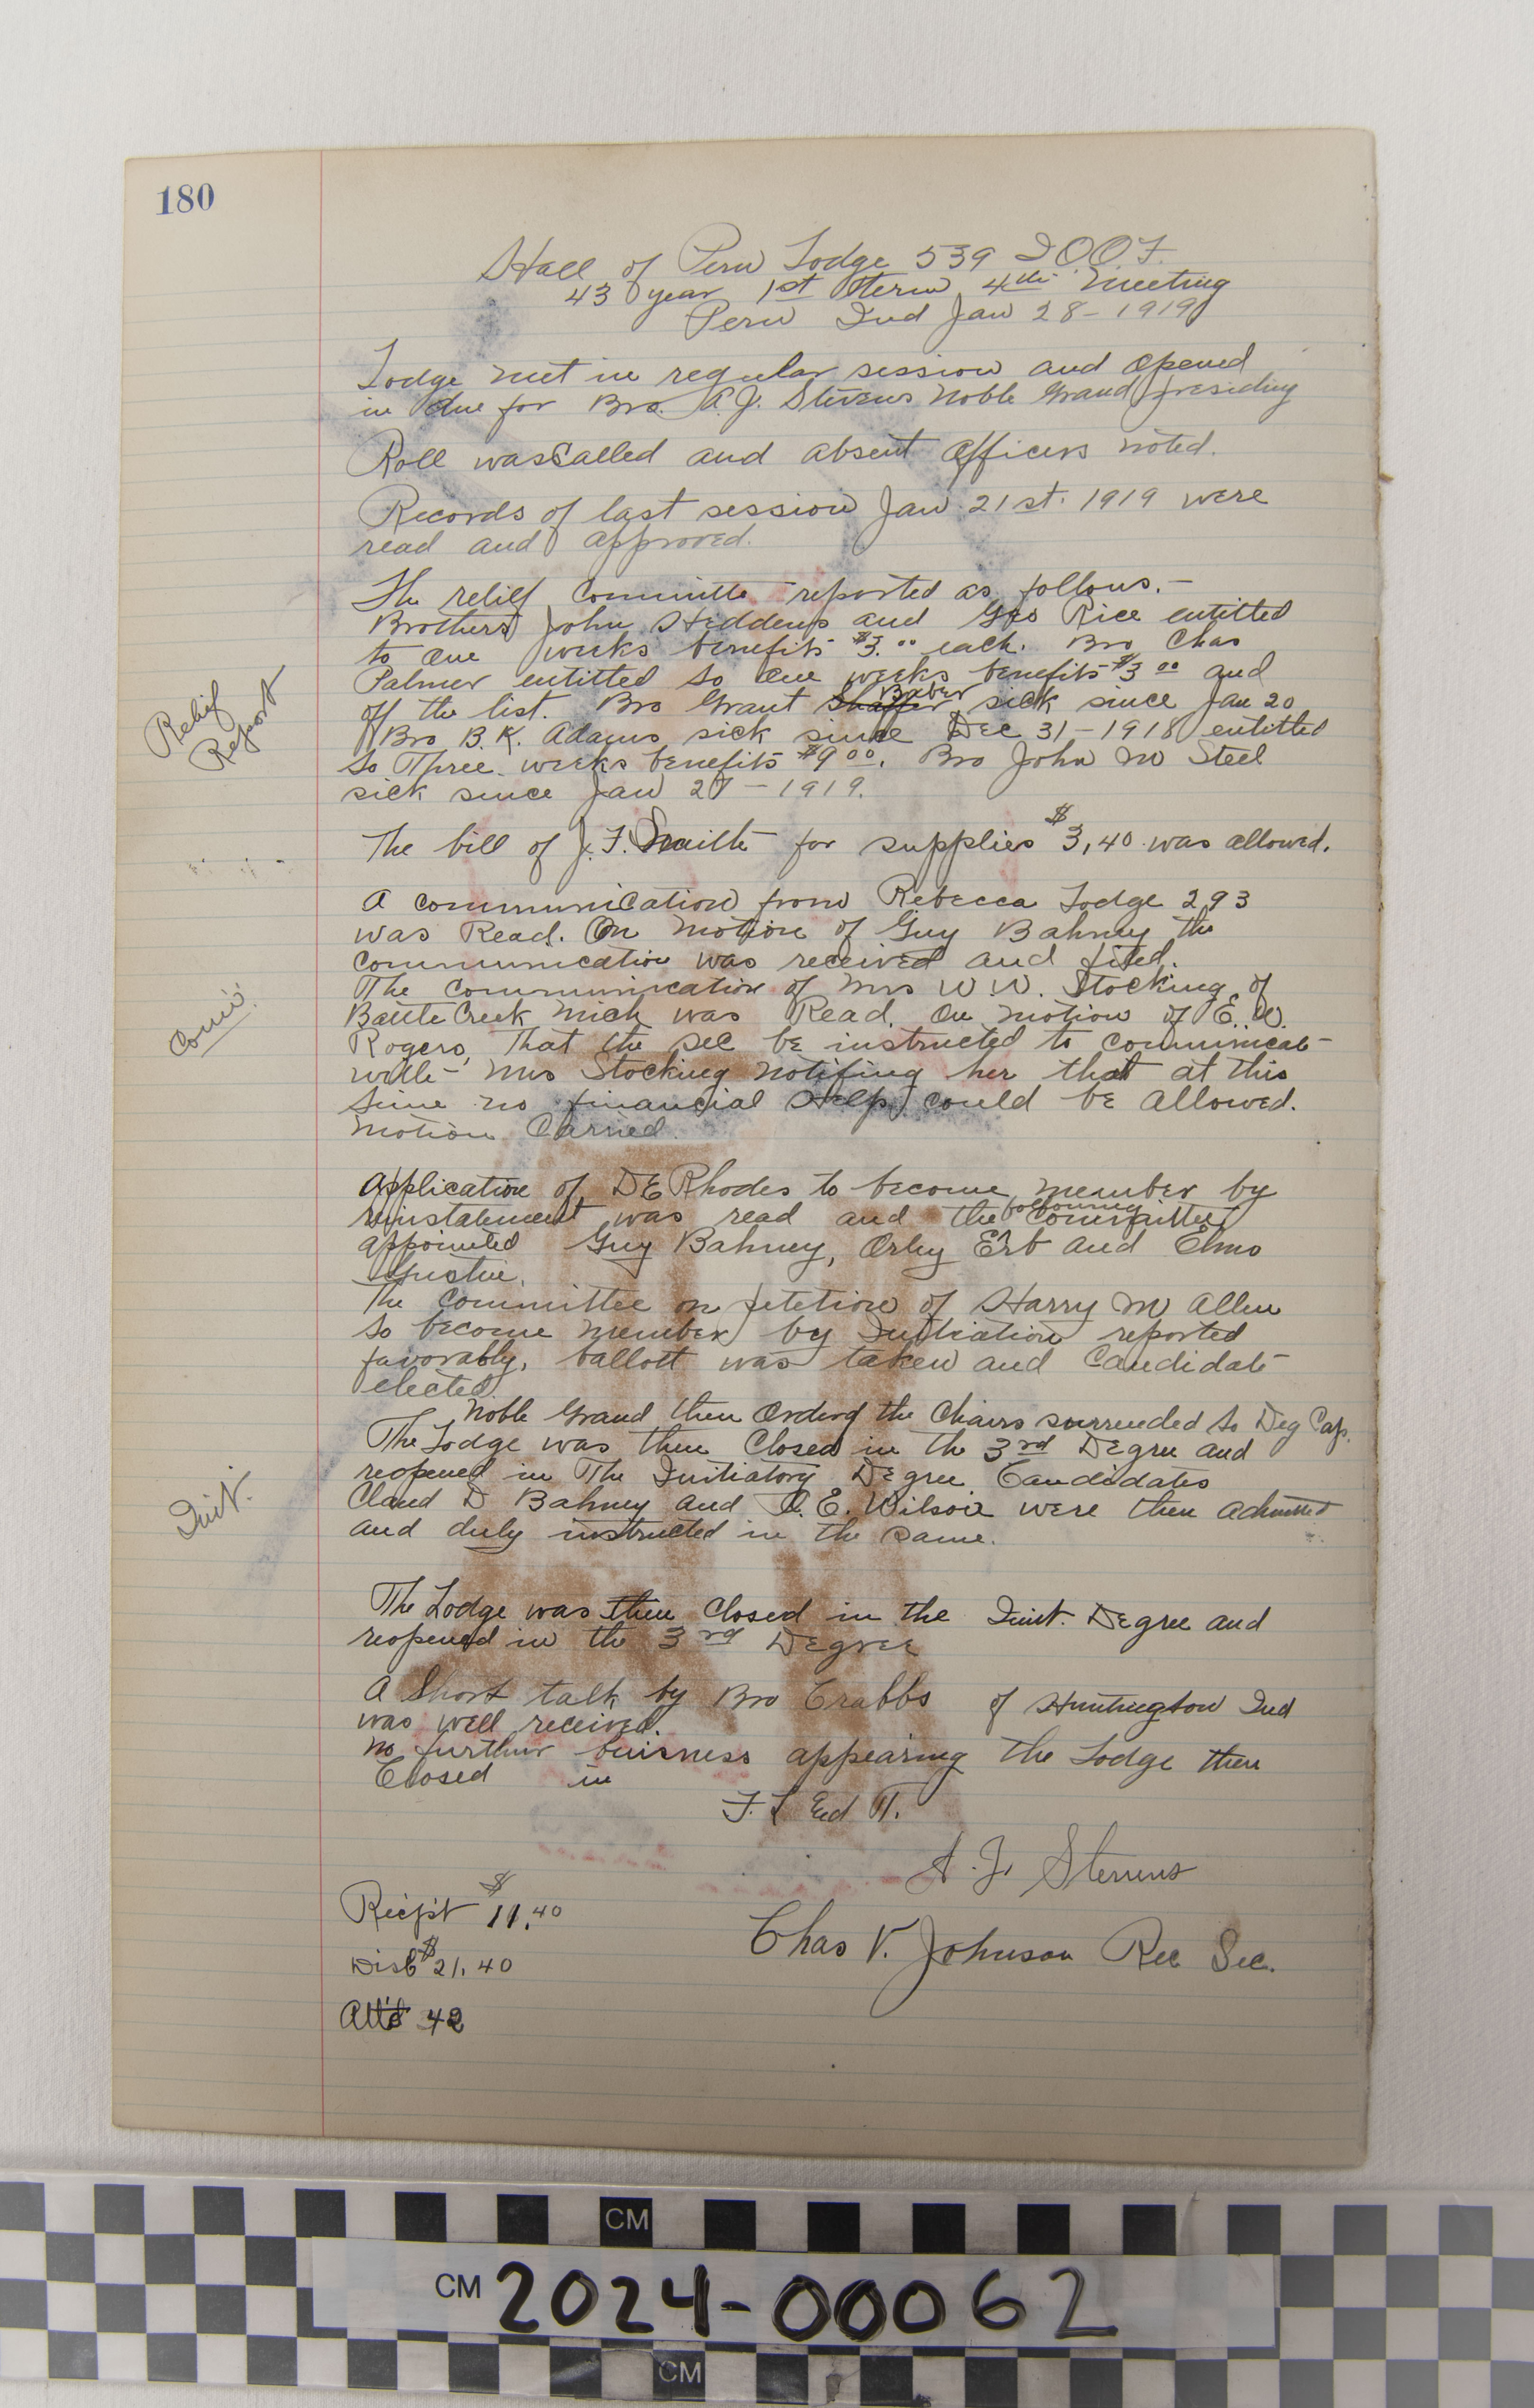 180
Hall of Peru Lodge 539 I.O.O.F.
43 year 1st term 4th meeting
Peru Ind Jan 28-1919
Lodge met in regular session and opened
in due for Bro. A.J. Stevens Noble Grand presiding
Roll was Called and absent officers noted.
Records of last session Jan 21st. 1919 were
read and approved.
Relief
Report
The relief Committe reported as follows.-
Brothers John Heddens and Geo Rice entitted
to one weeks benefits $3.00 each. Bro Chas
Palmer entitted to one weeks benefits $3 00 and
off the list. Bro Grant Shaffer Baber sick since Jan 20
Bro B.K. Adams sick since Dec 31-1918 entitted
to Three weeks benefits $9 00. Bro John M Steel
sick since Jan 27-1919.
The bill of J.F. Smith for supplies $3,40 was allowed.
A communication from Rebecca Lodge 293
was Read. On motion of Guy Bahney the
communication was received and filed.
Comu.
The communication of Mrs W.W. Stocking of
Battle Creek Mich was Read. On motion of E.W.
Rogers, That the Sec be instructed to communicat-
with Mrs Stocking notifing her that at this
time no financial Help could be allowed.
Motion Carried.
Application of D E Rhodes to become member by
reinstatement was read and the following committee
appointed Guy Bahney, Orley Erb and Elmo
The committee on petetion of Harry M Allen
to become member by Initiation reported
favorably, ballott was taken and Candidate
elected.
Noble Grand then Orderd the Chairs surrended to Deg Cap.
Init.
The Lodge was then Closed in the 3rd Degree and
reopened in The Initiatory Degree. Candidates
Claud D Bahney and O.E. Wilson were then admitted
and duly instructed in the same.
The Lodge was then Closed in the Init. Degree and
reopened in the 3rd Degree
A Short talk by Bro Crabbs of Huntington Ind
was well received.
No further buisness appearing the Lodge then
Closed in
F. L and T.
A. J. Stevens
Reicpt $11.40
Chas V. Johnson Rec Sec.
Disb $21.40
Att'd 42
CM
CM 2024-00062
CM